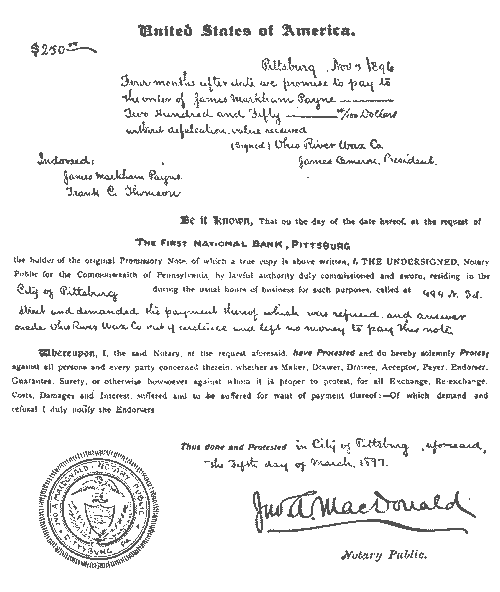 United States of America.
$250 00/100
Pittsburg, Nov 5 1896
Four months after date we promise to pay to
the order of James Markham Payne
Two Hundred and Fifty 00/100 Dollars
without defalcation, value received
(Signed) Ohio River Wax Co.
Indorsed: James Cameron, President.
James Markham Payne
Frank C. Thomson
Be it known, That on the day of the date hereof, at the request of
THE FIRST NATIONAL BANK, PITTSBURG
the holder of the original Promissory Note, of which a true copy is above written, I, THE UNDERSIGNED, Notary
Public for the Commonwealth of Pennsylvania, by lawful authority duly commissioned and sworn, residing in the
City of Pittsburg during the usual hours of business for such purposes, called at 499 N. 3d.
street and demanded the payment thereof which was refused, and answer
made Ohio River Wax Co out of existence and left no money to pay this note
Whereupon, I, the said Notary, at the request aforesaid, have Protested and do hereby solemnly Protest
against all persons and every party concerned therein, whether as Maker, Drawer, Drawee, Acceptor, Payer, Endorser,
Guarantee, Surety, or otherwise howsoever against whom it is proper to protest, for all Exchange, Re-exchange,
Costs, Damages and Interest, suffered and to be suffered for want of payment thereof:—Of which demand and
refusal I duly notify the Endorsers
Thus done and Protested in City of Pittsburg, aforesaid,
the Fifth day of March, 1897.
JNO. A. MACDONALD · NOTARY PUBLIC ·
PITTSBURG, PA.
Jno A. MacDonald
Notary Public.